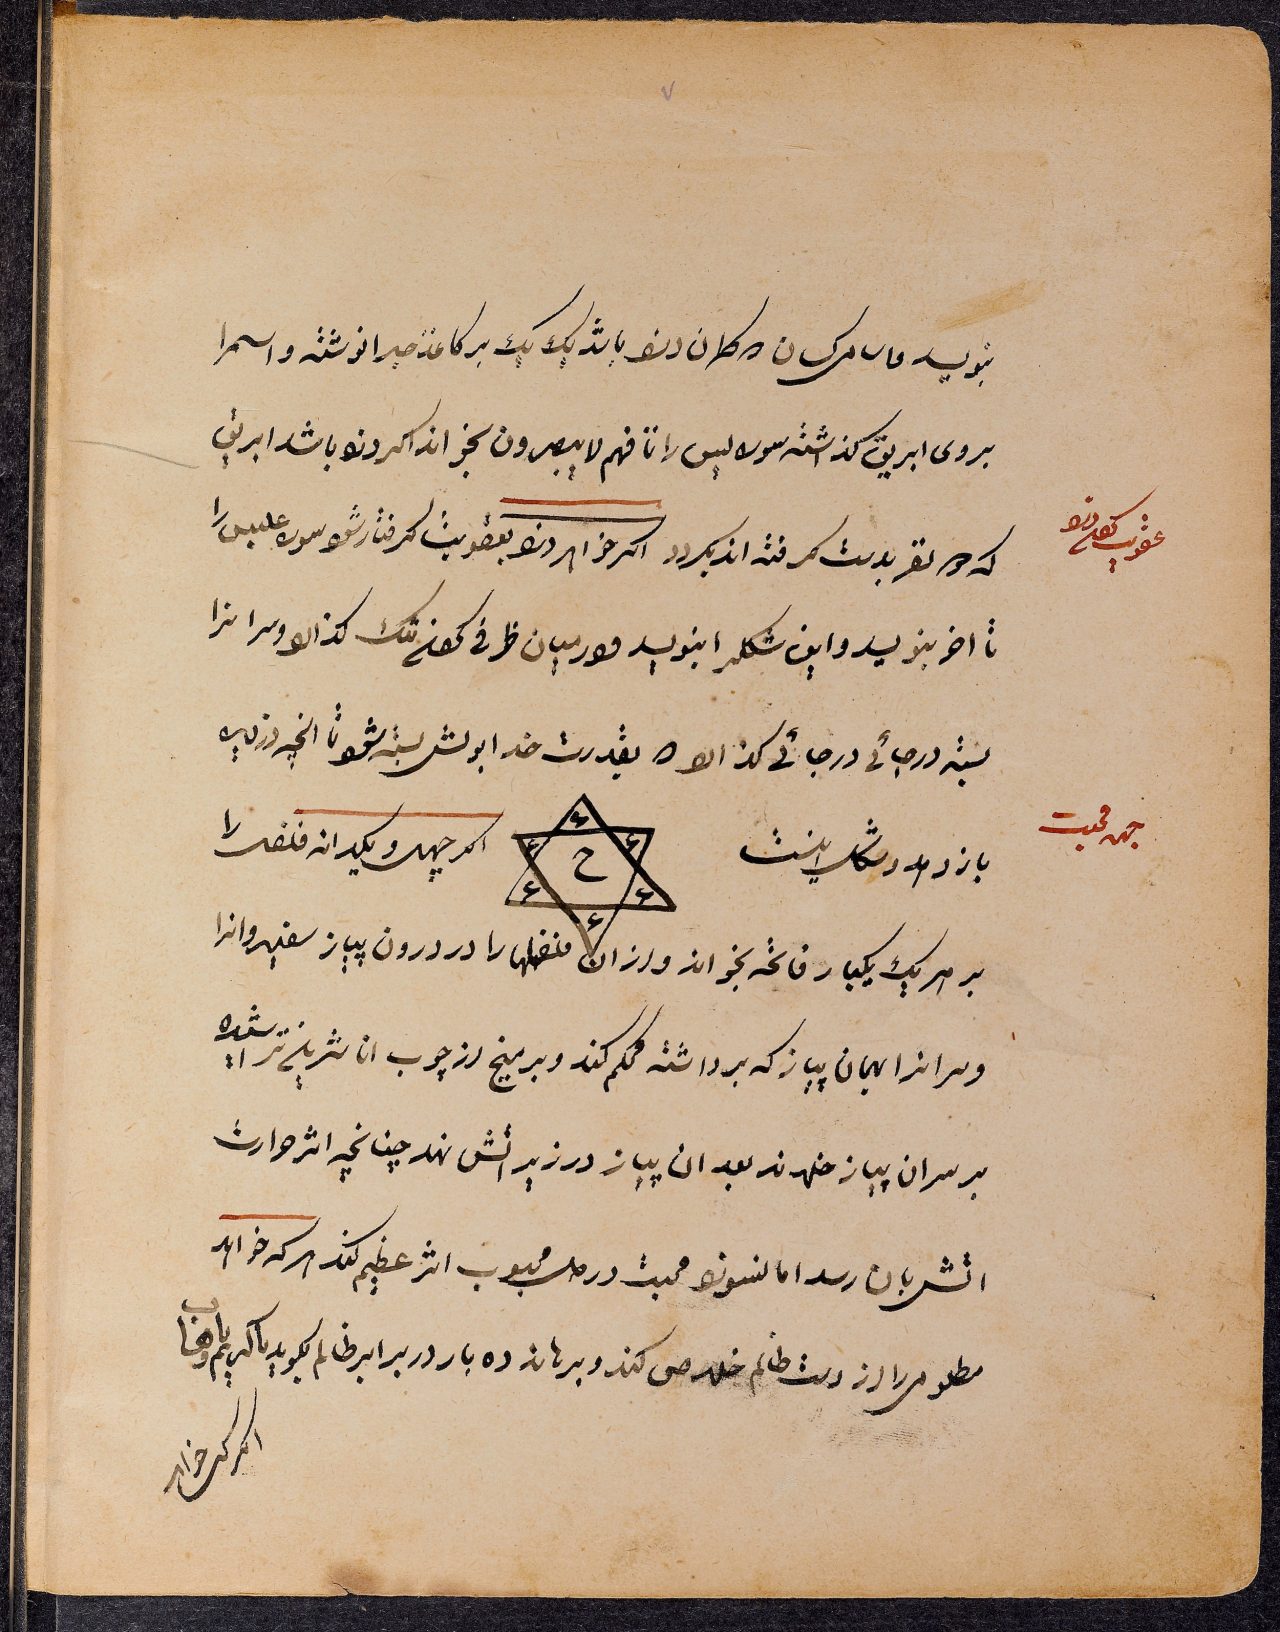 ۷
بنویسد و اسامی کسان که گمان دزد باشد یک یک بر کاغذ جدا نوشته و اسم را
بروی ابریق گذاشته سوره یس را تا فهم لا یبصرون بخواند اگر دزد باشد ابریق
که دو نفر بدست گرفته اند بگردد اگر خواهد دزد بعقوبت گرفتار شود سوره عبس را
عقوبت دزد
تا اخر بنویسد و این شکل را بنویسد و در میان ظرفی تنک گذارد و سر انرا
بسته در جائی در جائی گذارد که بقدرت خدا بولش بسته شود تا انچه دزدیده
باز دهد و شکل اینست
ح
۶ ۶ ۶ ۶ ۶ ۶
اگر چهل و یکدانه فلفل را
جهه محبت
بر هر یک یکبار فاتحه بخواند و از ان فلفلها را در درون پیاز سفید و انرا
و سر انرا بهمان پیاز که برداشته محکم کند و بر میخ از چوب انار شیرین تراشیده
بر سر ان پیاز خلاند بعد ان پیاز در زیر اتش نهد چنانچه اثر حرارت
اتش بان رسد اما نسوزد محبت در دل محبوب اثر عظیم کند هر که خواهد
مظلومی را از دست ظالم خلاص کند و برهاند ده بار در برابر ظالم بگوید یا کریم یا وهاب
اگر کسی خواهد